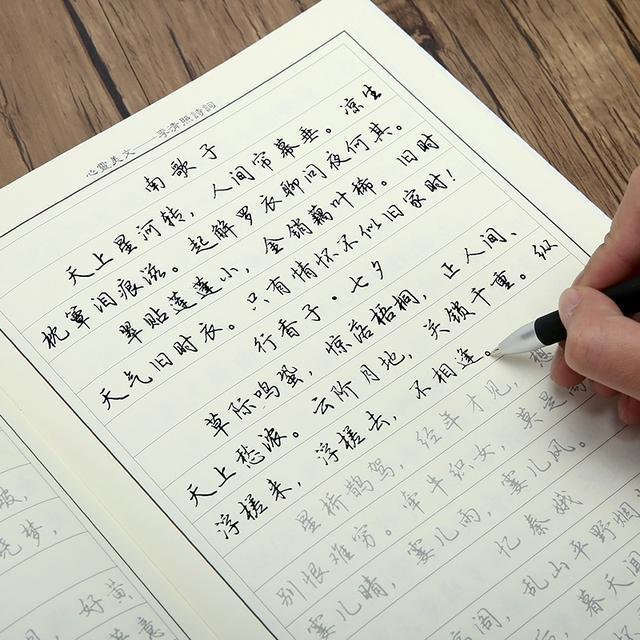 心靈美文——李清照詩詞
南歌子
天上星河转，人间帘幕垂。凉生
枕簟泪痕滋。起解罗衣聊问夜何其。
翠贴莲蓬小，金销藕叶稀。旧时
天气旧时衣。只有情怀不似旧家时！
行香子·七夕
草际鸣蛩，惊落梧桐，正人间、
天上愁浓。云阶月地，关锁千重。纵
浮槎来，浮槎去，不相逢。
星桥鹊驾，经年才见，想
别恨难穷。牵牛织女，莫是离
霎儿晴，霎儿雨，霎儿风。
忆秦娥
高阁，乱山平野烟
暮天闻